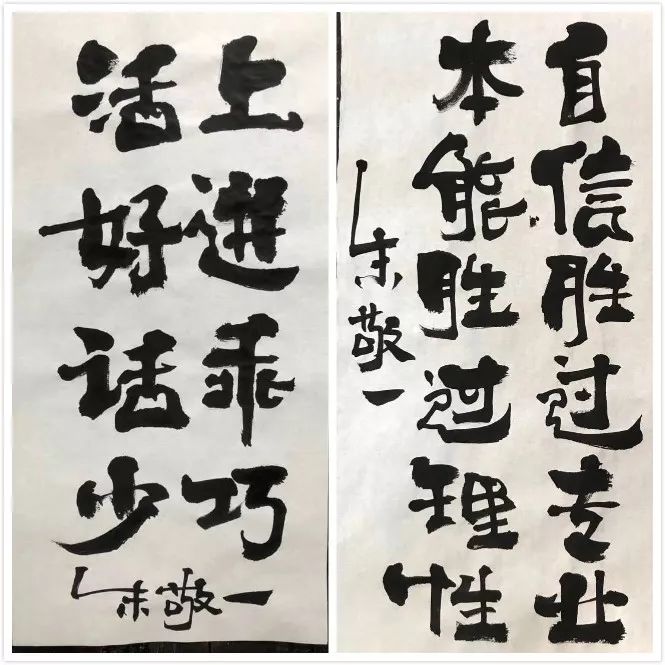 上進乖巧
活好话少
朱敬一
自信胜过专业
本能胜过理性
朱敬一